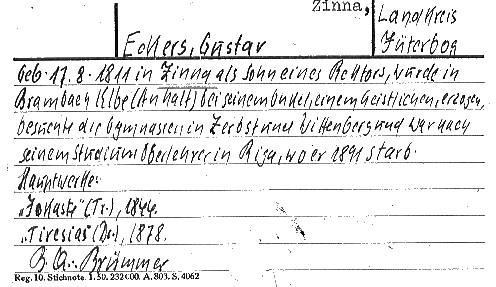 Zinna,
Landkreis
Jüterbog
Eckers, Gustav
Geb. 17. 8. 1811 in Zinna als Sohn eines Rektors, wurde in
Brambach Elbe (Anhalt) bei seinem Onkel, einem Geistlichen, erzogen,
besuchte die Gymnasien in Zerbst und Wittenberg und war nach
seinem Studium Oberlehrer in Riga, wo er 1891 starb.
Hauptwerke:
„Jokaste" (Tr.), 1844.
„Tiresias" (Dr.), 1878.
B. Qu.: Brümmer
Reg. 10. Stichnote. 1. 50. 232000. A. 803. S. 4062